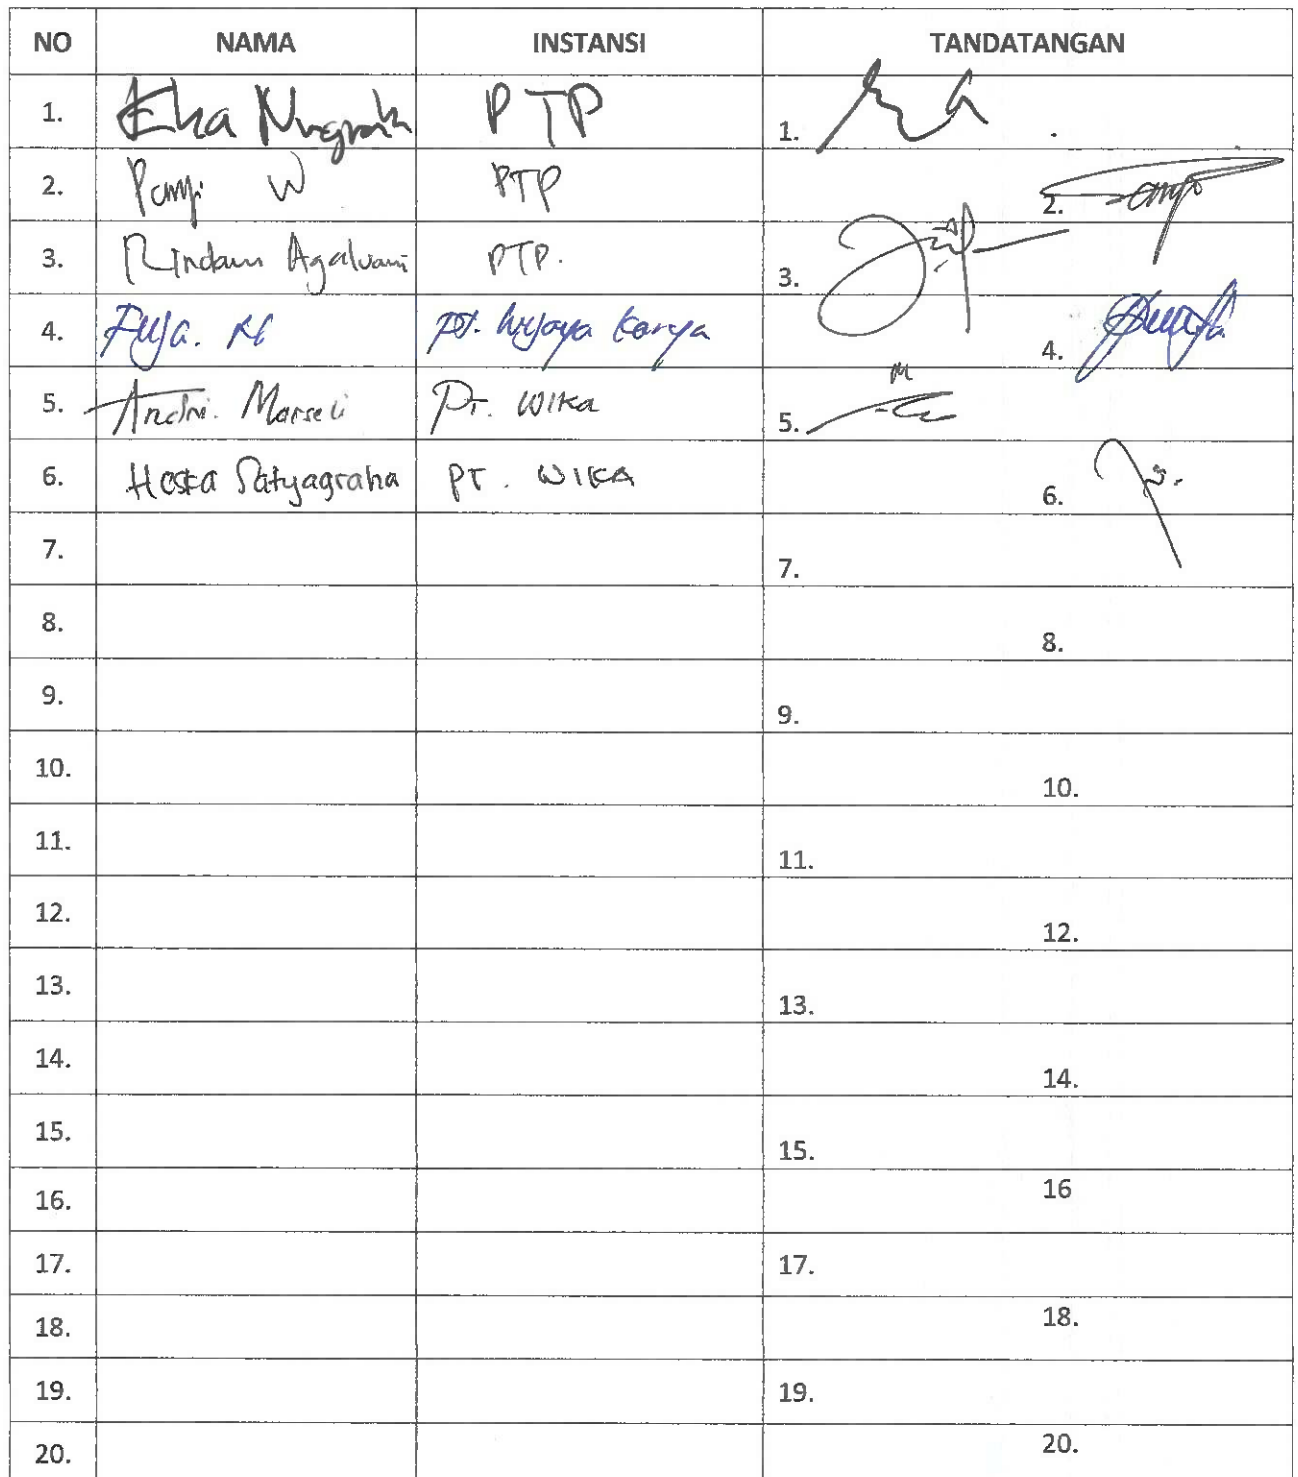 NO NAMA INSTANSI TANDATANGAN
1. Eka Nugraha PTP 1.
2. Panji W PTP 2.
3. Rindam PTP. 3.
4. Puja. M PT. Wijaya Karya 4.
5. Andri. Marseli PT. WIKA 5.
6. Hesta Satyagraha PT. WIKA 6.
7. 7.
8. 8.
9. 9.
10. 10.
11. 11.
12. 12.
13. 13.
14. 14.
15. 15.
16. 16
17. 17.
18. 18.
19. 19.
20. 20.